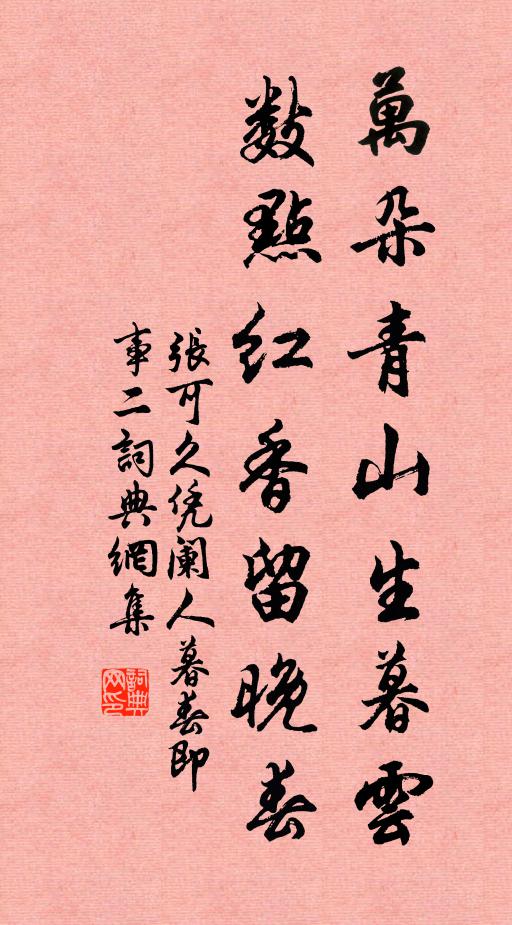 萬朵青山生暮雲
數點紅香留晚春
張可久凭闌人暮春即
事二詞典網集
詞典
网印